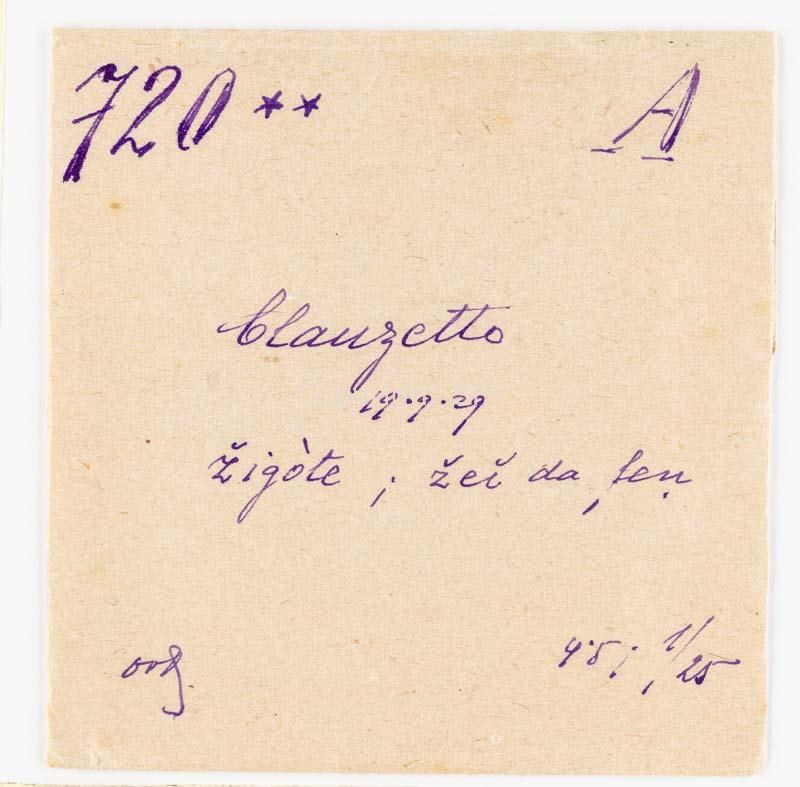 720 ** A
Clauzetto
19.9.29
žigòte ; žeí da fen
4·5 ; 1/25